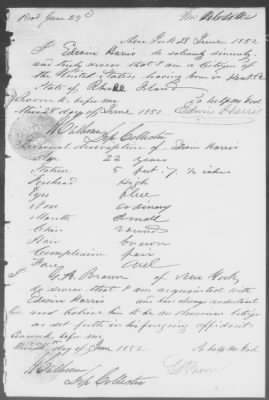 Recd June 29
New York 28 June 1852
I Edwin Harris do solemnly sincerely
and truly swear that I am a Citizen of
the United States having been born in
State of Rhode Island
So help me God
day of June 1852
Edwin Harris
Collector
Personal description of Edwin Harris
Age 22 years
Stature 5 feet 7 1/2 inches
Forehead High
Eyes blue
Nose ordinary
Mouth small
Chin round
Hair brown
Complexion fair
Face oval
I G. A. Brown of New York
do swear that I am acquainted with
Edwin Harris and have always understood
and believe him to be an American Citizen
as set forth in his foregoing affidavit
day of June 1852
So help me God
Collector